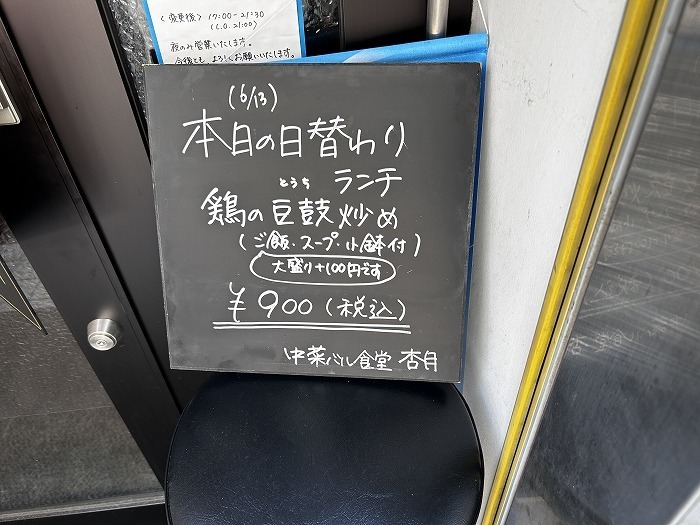 <変更後> 17:00-21:30
(L.O. 21:00)
夜のみ営業いたします。
今後とも よろしくお願いいたします。
(6/13)
本日の日替わり
ランチ
とうち
鶏の豆鼓炒め
(ご飯・スープ・小鉢付)
大盛り+100円です
¥900(税込)
中菜バル食堂 杏月